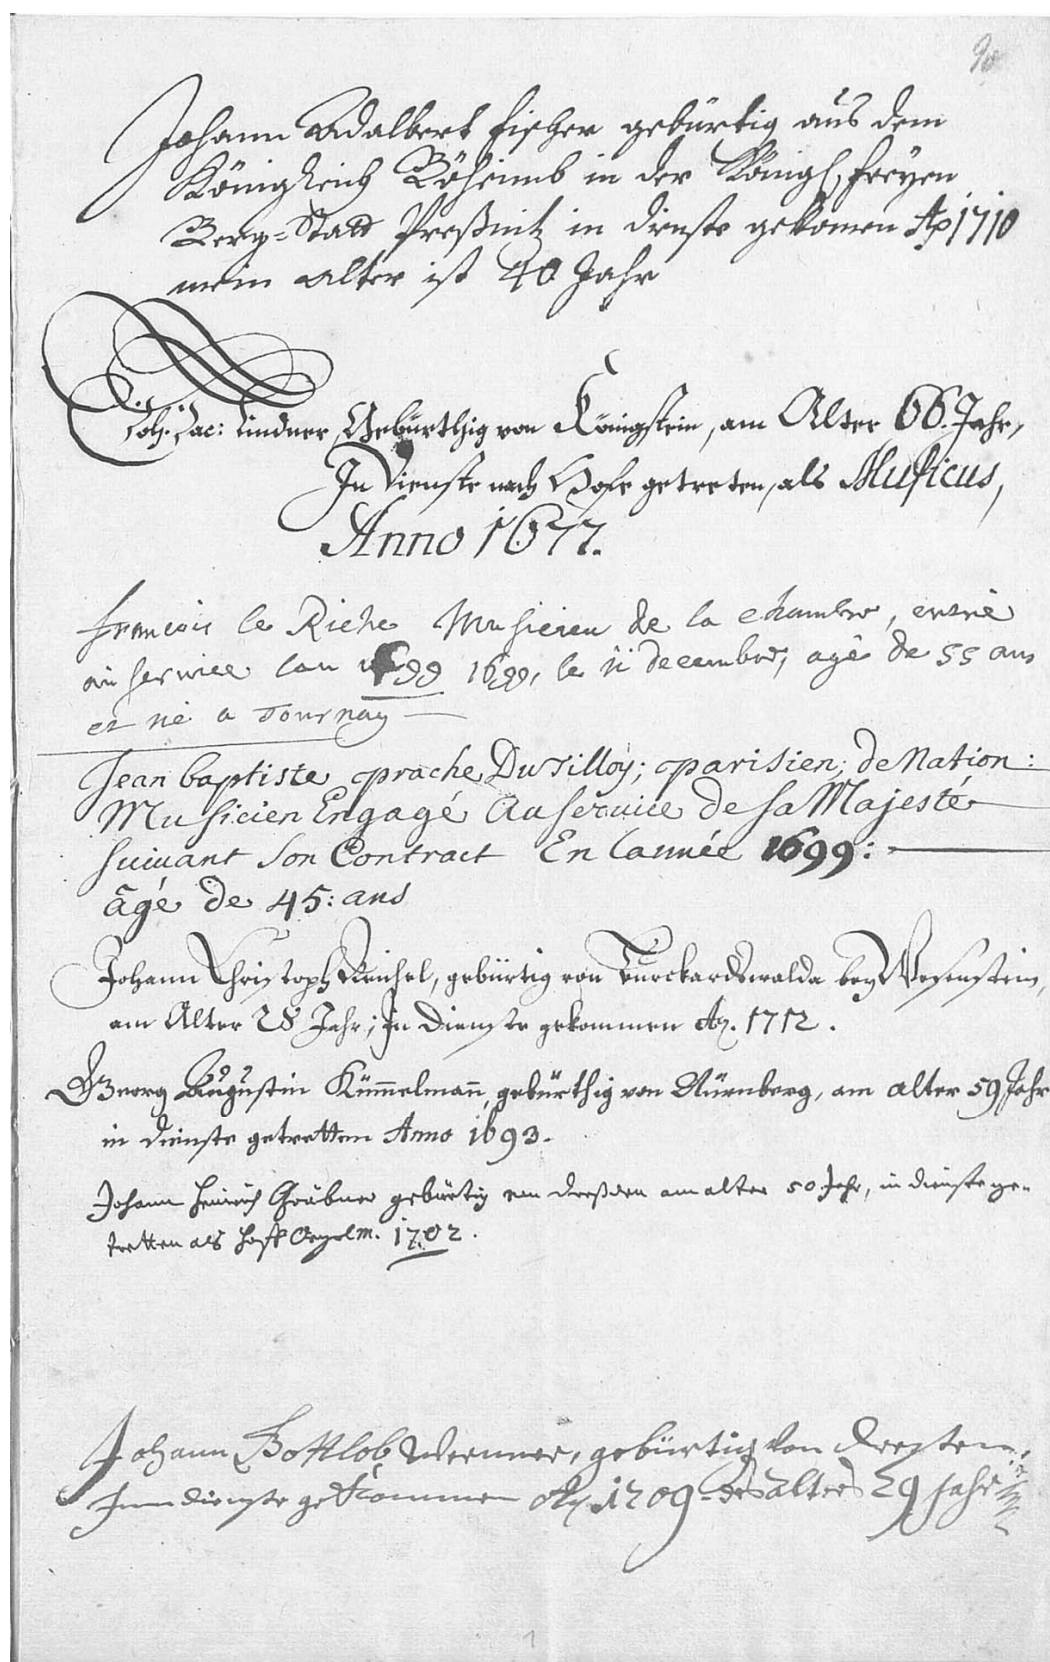 90
Johann Adalbert Fischer gebürtig aus dem
Königreich Böheimb in der Königl. freyen
Berg-Stadt Preßnitz in dienste gekomen Ao 1710
mein alter ist 40 Jahr
Joh. Jac: Lindner, Gebürthig von Königstein, am Alter 66. Jahr,
In Dienste nach Hofe getreten, als Musicus,
Anno 1677.
francois le Riche Musicien de la chambre, entré
au service lan 1699, le 11 decembre, agé de 55 ans
et né a Tournay
Jean baptiste prache DuTilloy; parisien; de Nation:
Musicien Engagé Au Service De Sa Majesté
suivant Son Contract En Lannée 1699:
âgé De 45: ans
Johann Christoph Reichel, gebürtig von Burckardswalda bey Wesenstein,
am Alter 28 Jahr; In Dienste gekommen Ao. 1712.
Georg Augustin Kümmelmañ, gebürthig von Nürnberg, am alter 59 Jahr
in dienste getretten Anno 1693.
Johann Heinrich Gräbner gebürtig von Dreßden am alter 50 Jahr, in dienste ge-
tretten als Hoff Orgelm. 1702.
Johann Gottlob Werner, gebürtig von Dreßten,
Inn dienste gekommen Ao. 1709. des alters 29 Jahr
1